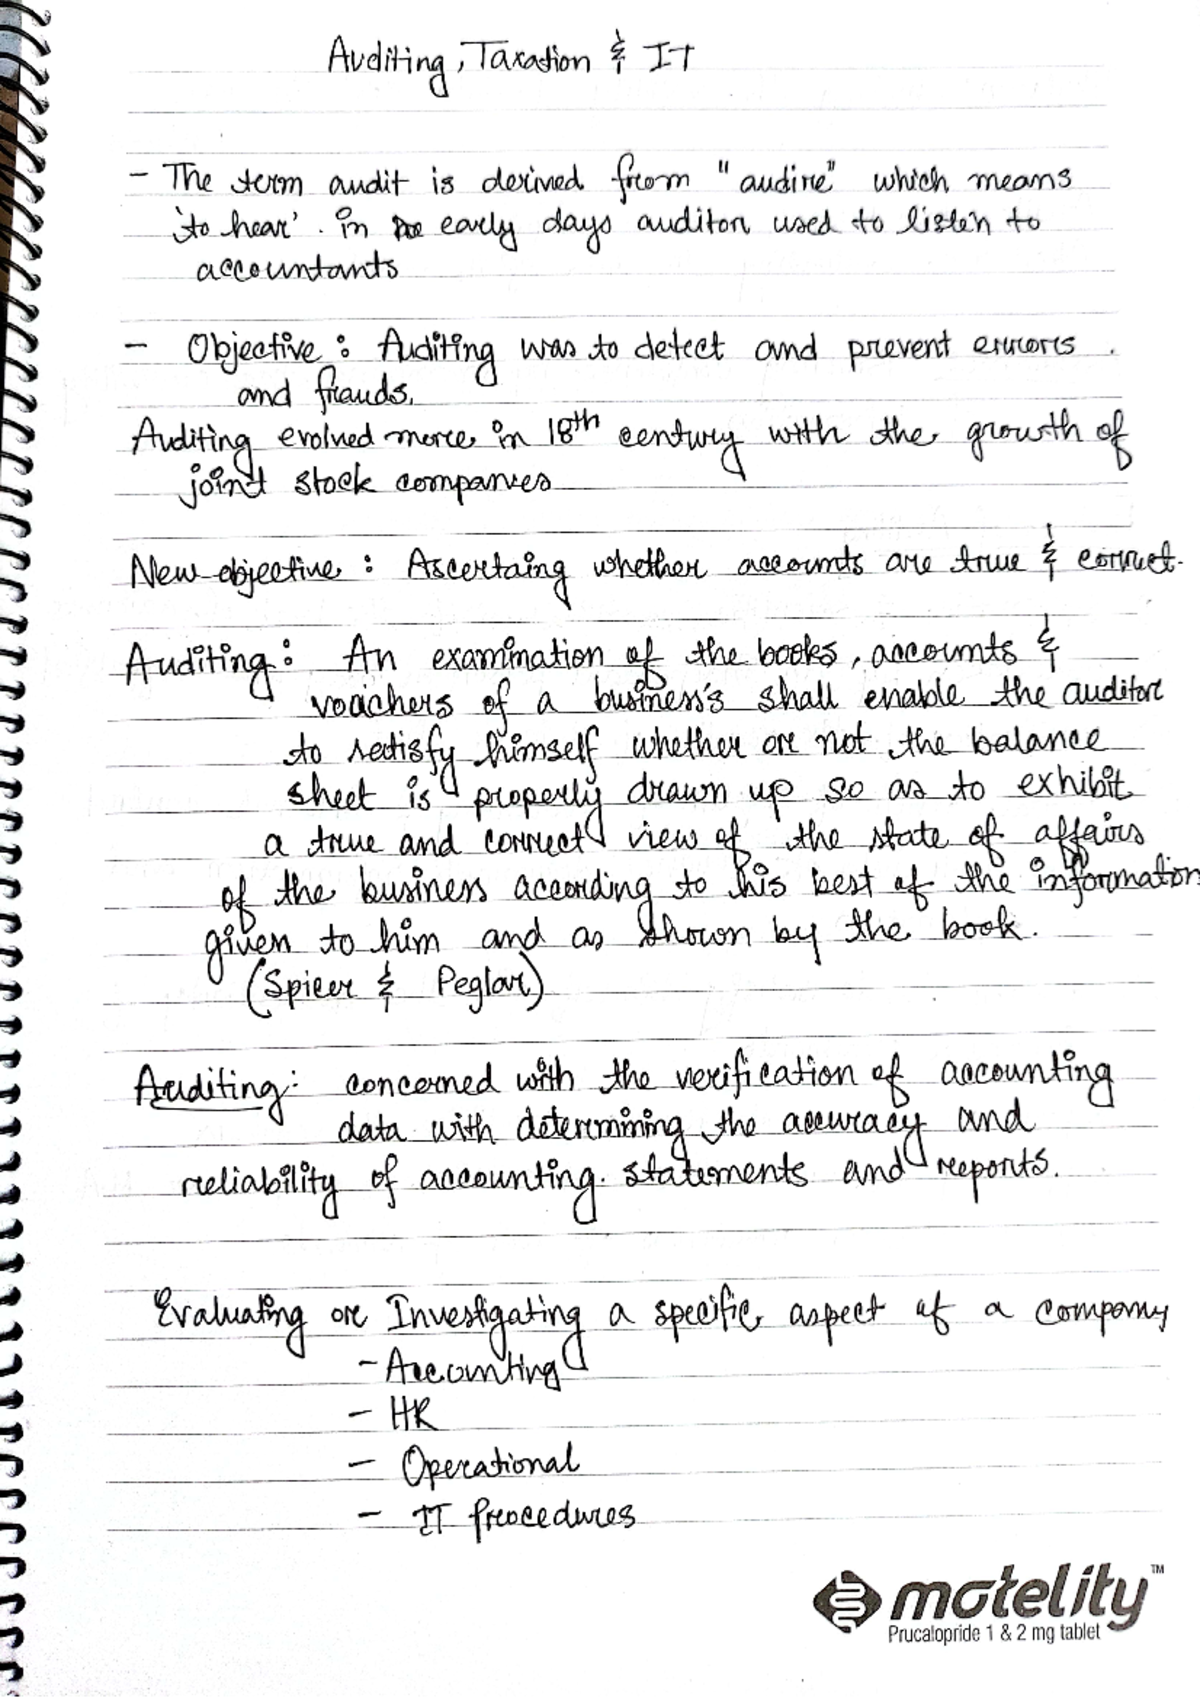 Auditing, Taxation & IT
- The term audit is derived from "audire" which means
'to hear'. in early days auditor used to listen to
accountants
- Objective: Auditing was to detect and prevent errors.
and frauds.
Auditing evolved more in 18th century with the growth of
joint stock companies
New objective: Ascertaing whether accounts are true & correct.
Auditing: An examination of the books, accounts &
vouchers of a business's shall enable the auditor
to satisfy himself whether or not the balance
sheet is properly drawn up so as to exhibit
a true and correct view of the state of affairs
of the business according to his best of the information
given to him and as shown by the book.
(Spicer & Peglar)
Auditing: concerned with the verification of accounting
data with determining the accuracy and
reliability of accounting. statements and reports.
Evaluating or Investigating a specific aspect of a company
- Accounting
- HR
- Operational
- IT Procedures
motelity™
Prucalopride 1 & 2 mg tablet